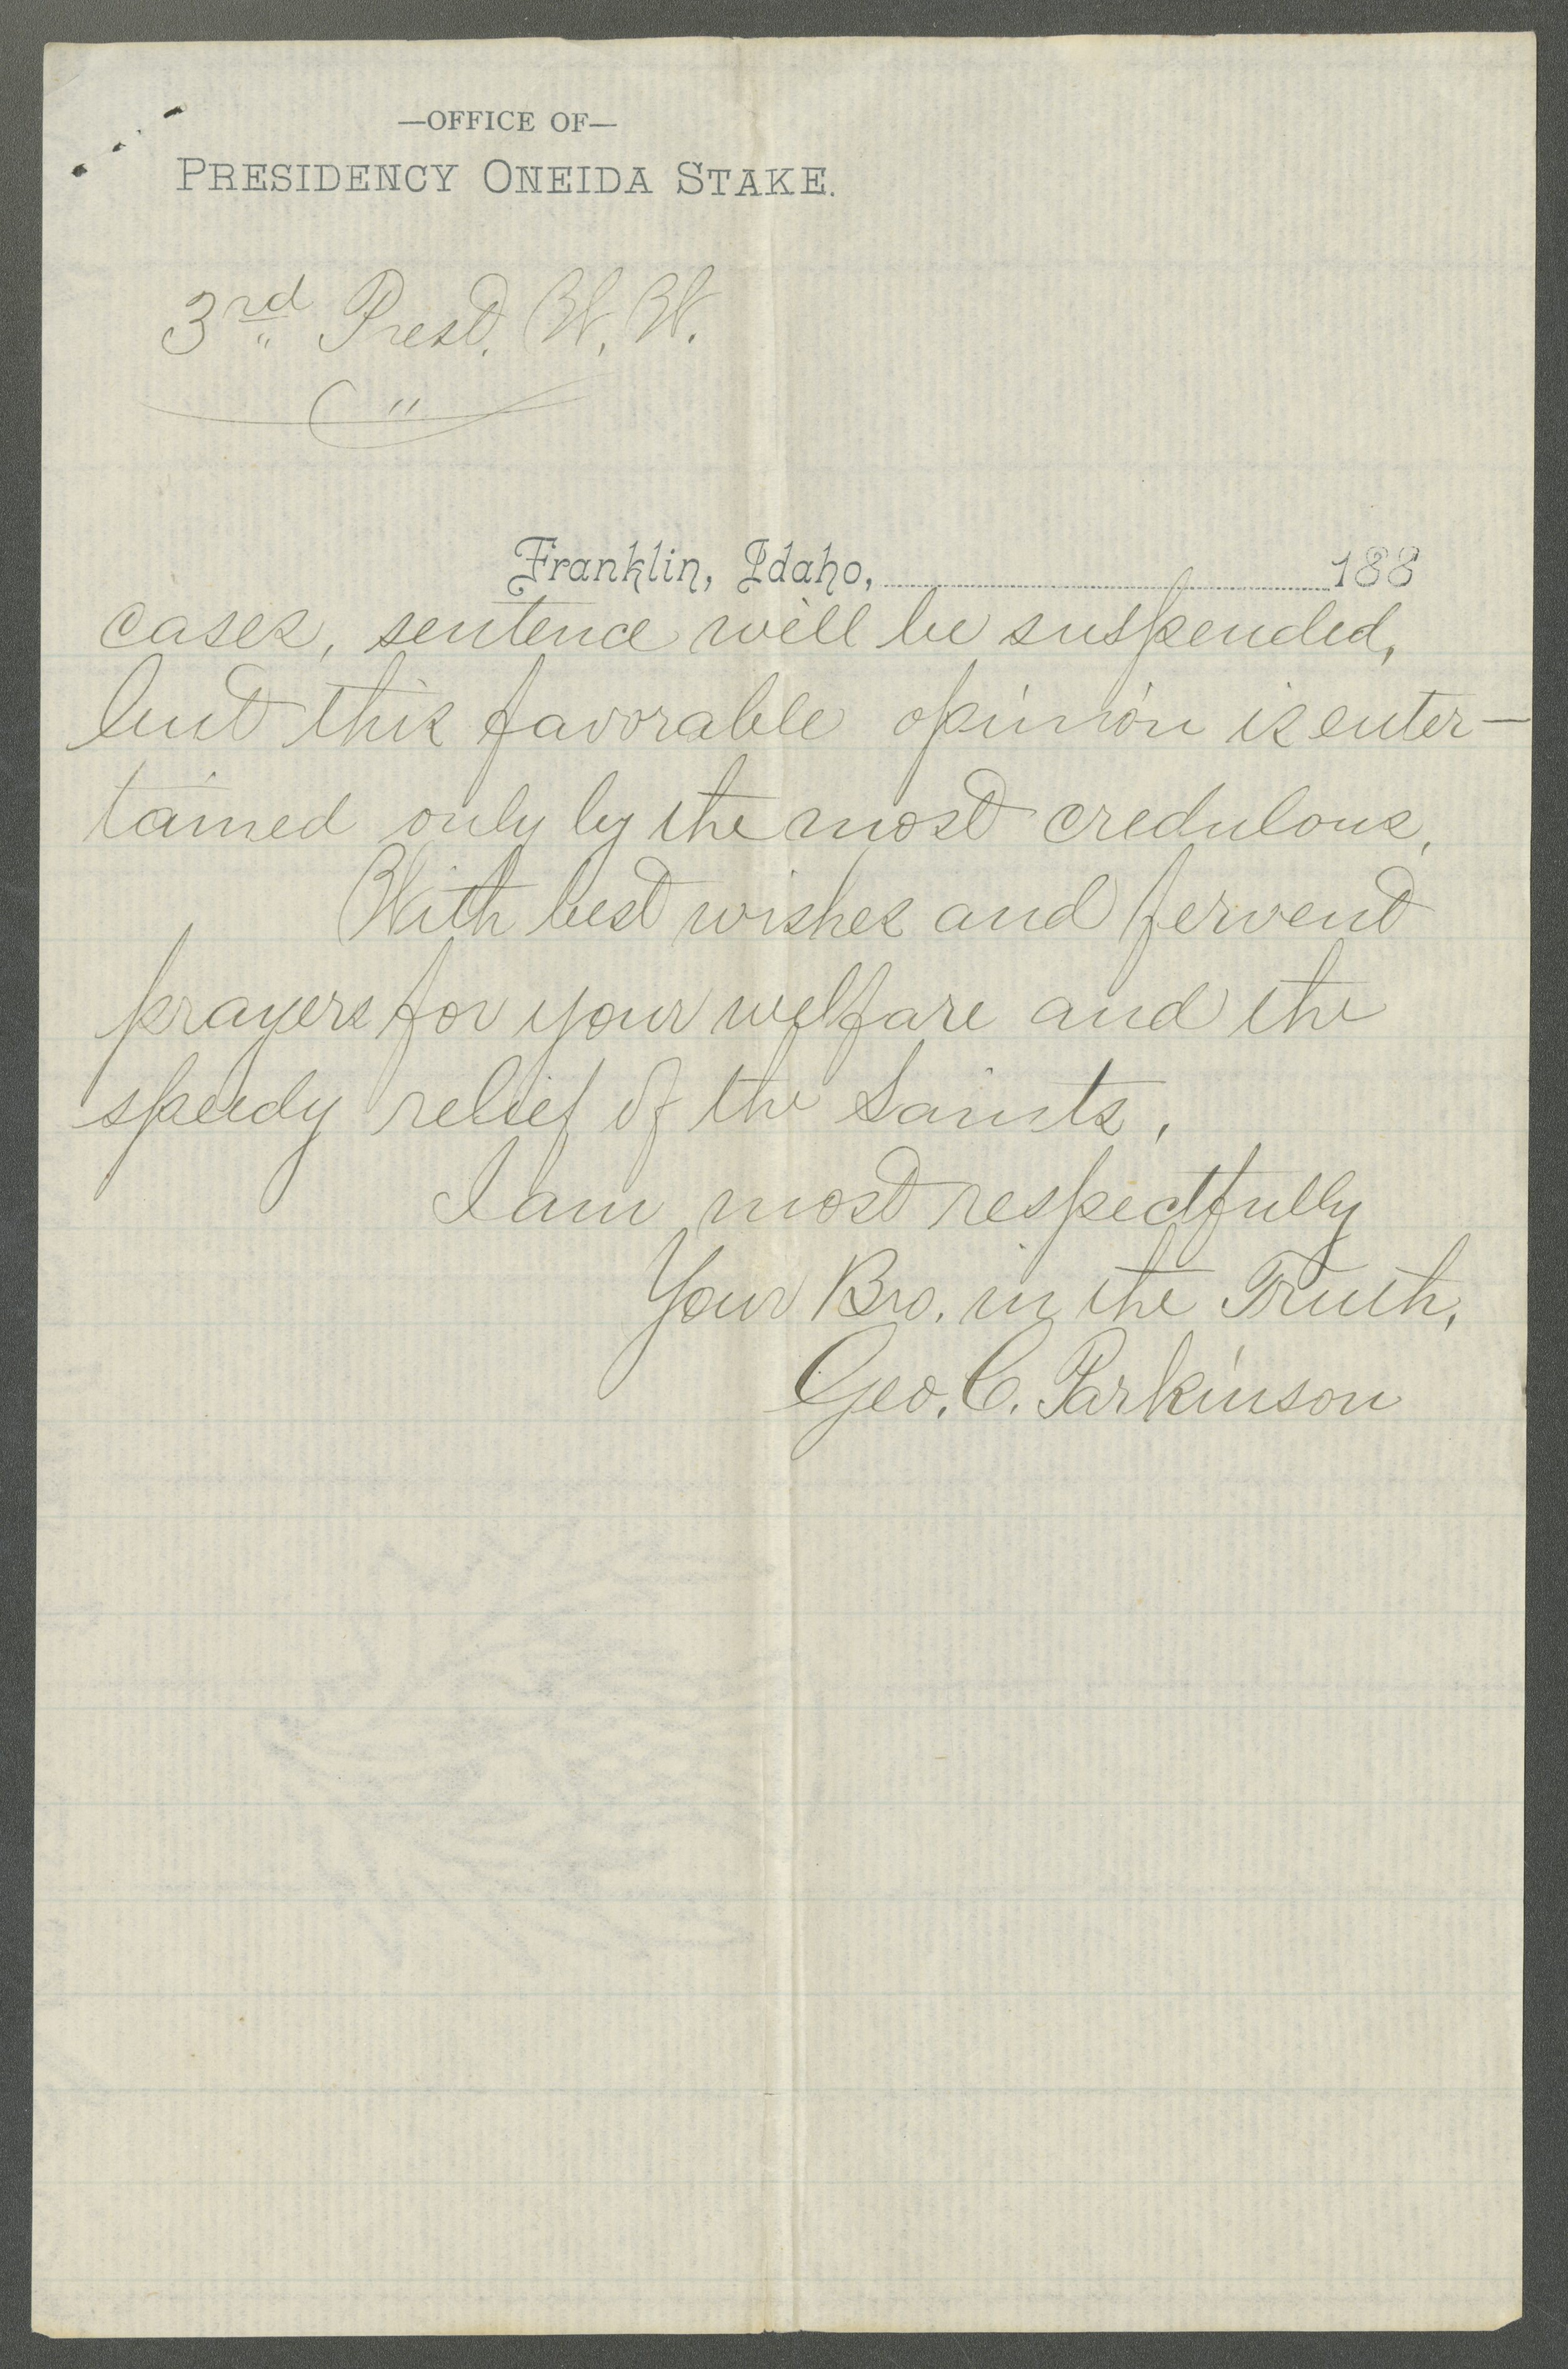 —OFFICE OF—
PRESIDENCY ONEIDA STAKE.
3rd Prest. W. W.
Franklin, Idaho, 188
cases, sentence will be suspended,
but this favorable opinion is enter-
tained only by the most credulous,
With best wishes and fervent
prayers for your welfare and the
speedy relief of the Saints,
I am most respectfully
Your Bro. in the Truth,
Geo. C. Parkinson